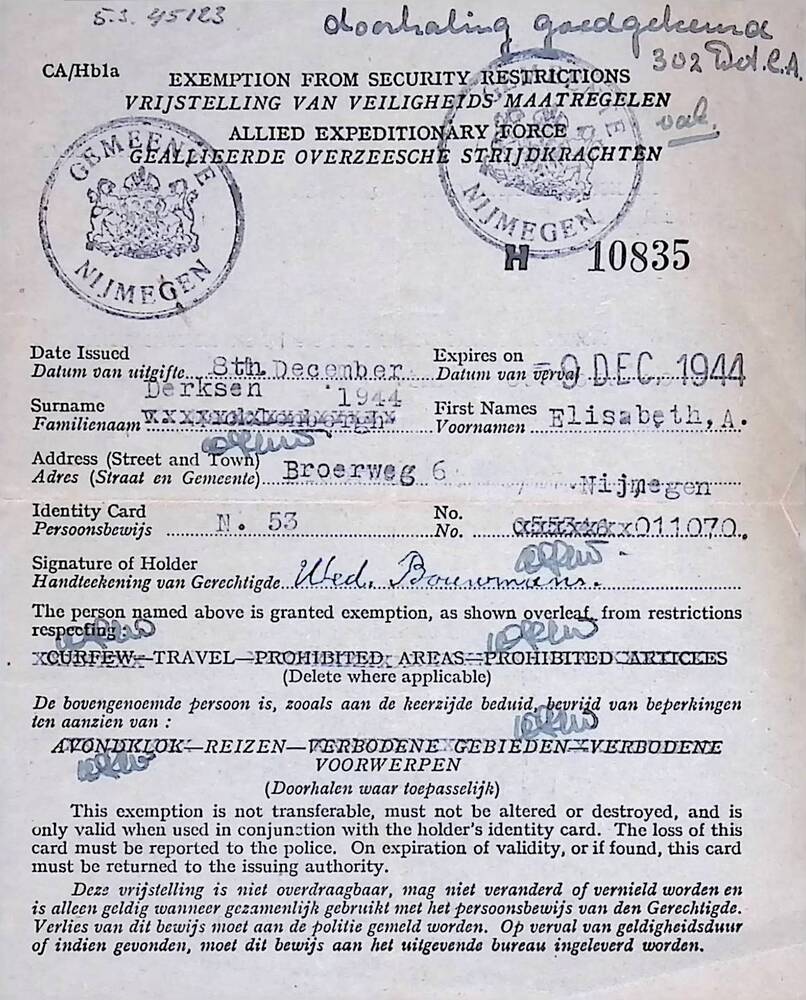 S.S. 45123
doorhaling goedgekeurd
302 Det. C.A.
CA/Hb1a
EXEMPTION FROM SECURITY RESTRICTIONS
VRIJSTELLING VAN VEILIGHEIDS MAATREGELEN
ALLIED EXPEDITIONARY FORCE
GEALLIEERDE OVERZEESCHE STRIJDKRACHTEN
GEMEENTE NIJMEGEN
GEMEENTE NIJMEGEN
H 10835
Date Issued Expires on
Datum van uitgifte 8th. December 1944 Datum van verval -9 DEC. 1944
Derksen
Surname First Names
Familienaam Voornamen Elisabeth, A.
Address (Street and Town)
Adres (Straat en Gemeente) Broerweg 6 Nijmegen
Identity Card No.
Persoonsbewijs N. 53 No. 011070.
Signature of Holder
Handteekening van Gerechtigde Wed. Bouwmans.
The person named above is granted exemption, as shown overleaf, from restrictions
respecting :
CURFEW—TRAVEL—PROHIBITED AREAS—PROHIBITED ARTICLES
(Delete where applicable)
De bovengenoemde persoon is, zooals aan de keerzijde beduid, bevrijd van beperkingen
ten aanzien van :
AVONDKLOK—REIZEN—VERBODENE GEBIEDEN—VERBODENE
VOORWERPEN
(Doorhalen waar toepasselijk)
This exemption is not transferable, must not be altered or destroyed, and is
only valid when used in conjunction with the holder's identity card. The loss of this
card must be reported to the police. On expiration of validity, or if found, this card
must be returned to the issuing authority.
Deze vrijstelling is niet overdraagbaar, mag niet veranderd of vernield worden en
is alleen geldig wanneer gezamenlijk gebruikt met het persoonsbewijs van den Gerechtigde.
Verlies van dit bewijs moet aan de politie gemeld worden. Op verval van geldigheidsduur
of indien gevonden, moet dit bewijs aan het uitgevende bureau ingeleverd worden.